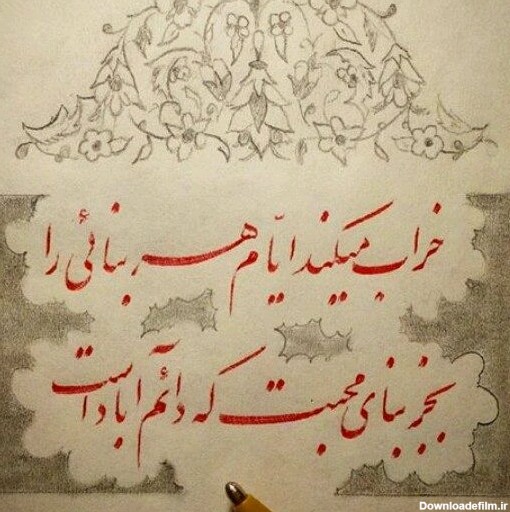 خراب میکند ایّام هر بنائی را
بجز بنای محبت که دائم آباد است
Downloadefilm.ir